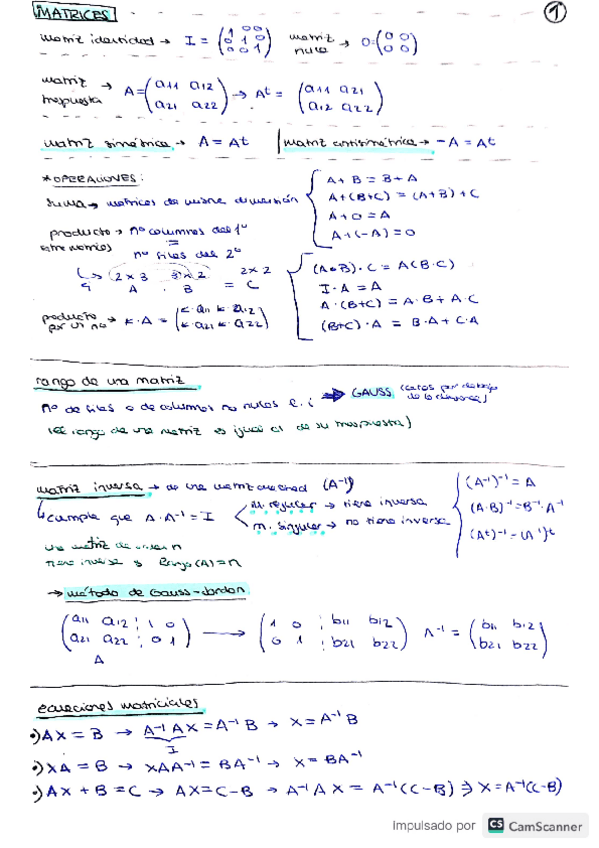 MATRICES ①
matriz identidad → I = (1 0 0 / 0 1 0 / 0 0 1) matriz nula → O = (0 0 / 0 0)
matriz traspuesta → A = (a11 a12 / a21 a22) → At = (a11 a21 / a12 a22)
matriz simétrica → A = At | matriz antisimétrica → -A = At
* OPERACIONES:
suma → matrices de misma dimensión
A + B = B + A
A + (B+C) = (A+B) + C
A + O = A
A + (-A) = O
producto entre matrices → nº columnas del 1º
=
nº filas del 2º
↳ 2 x 3 3 x 2 2 x 2
A . B = C
(A·B) · C = A(B·C)
I · A = A
A · (B+C) = A·B + A·C
(B+C) · A = B·A + C·A
producto por un nº → k·A = (k·a11 k·a12 / k·a21 k·a22)
rango de una matriz
nº de filas o de columnas no nulas l.i → GAUSS (ceros por debajo de la
(el rango de una matriz es igual al de su traspuesta)
matriz inversa → de una matriz cuadrada (A⁻¹)
↳ cumple que A·A⁻¹ = I
m. regular → tiene inversa
m. singular → no tiene inversa
(A⁻¹)⁻¹ = A
(A·B)⁻¹ = B⁻¹·A⁻¹
(At)⁻¹ = (A⁻¹)t
una matriz de orden n
tiene inversa si Rango(A) = n
→ método de Gauss-Jordan
(a11 a12 ⋮ 1 0 / a21 a22 ⋮ 0 1) → (1 0 ⋮ b11 b12 / 0 1 ⋮ b21 b22) A⁻¹ = (b11 b12 / b21 b22)
A
ecuaciones matriciales
•) AX = B → A⁻¹AX = A⁻¹B → X = A⁻¹B
I
•) XA = B → XAA⁻¹ = BA⁻¹ → X = BA⁻¹
•) AX + B = C → AX = C-B → A⁻¹AX = A⁻¹(C-B) → X = A⁻¹(C-B)
Impulsado por CS CamScanner